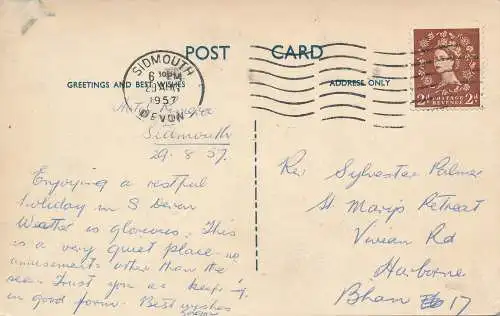 POST CARD
GREETINGS AND BEST WISHES
ADDRESS ONLY
SIDMOUTH
6 PM
1957
DEVON
2D POSTAGE REVENUE 2D
Sidmouth
29.8.57.
Enjoying a restful
holiday in S Devon
Weather is glorious. This
is a very quiet place no
amusements other than the
sea. Trust you are keep'g
in good form. Best wishes
Rev Sylvester Palmer
St. Mary's Retreat
Vivian Rd
Harborne
Bham 17